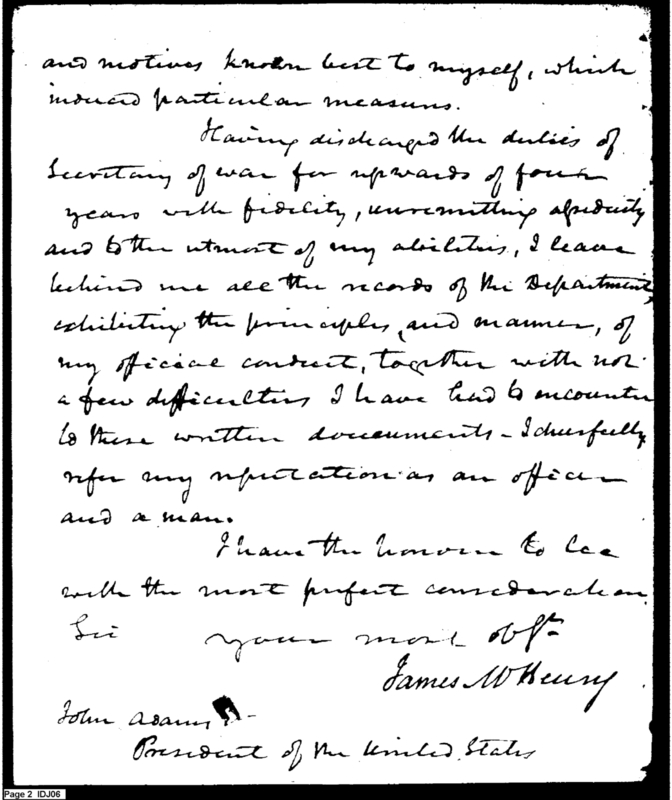 and motives known best to myself, which
induced particular measures.
Having discharged the duties of
Secretary of war for upwards of four
years with fidelity, unremitting assiduity
and to the utmost of my abilities, I leave
behind me all the records of the Department,
exhibiting the principles, and manner, of
my official conduct, together with not
a few difficulties I have had to encounter
to these written documents - I chearfully
refer my reputation as an officer
and a man.
I have the honour to be
with the most perfect consideration
Sir your most obt
James McHenry
John Adams
President of the United States
Page 2 IDJ06